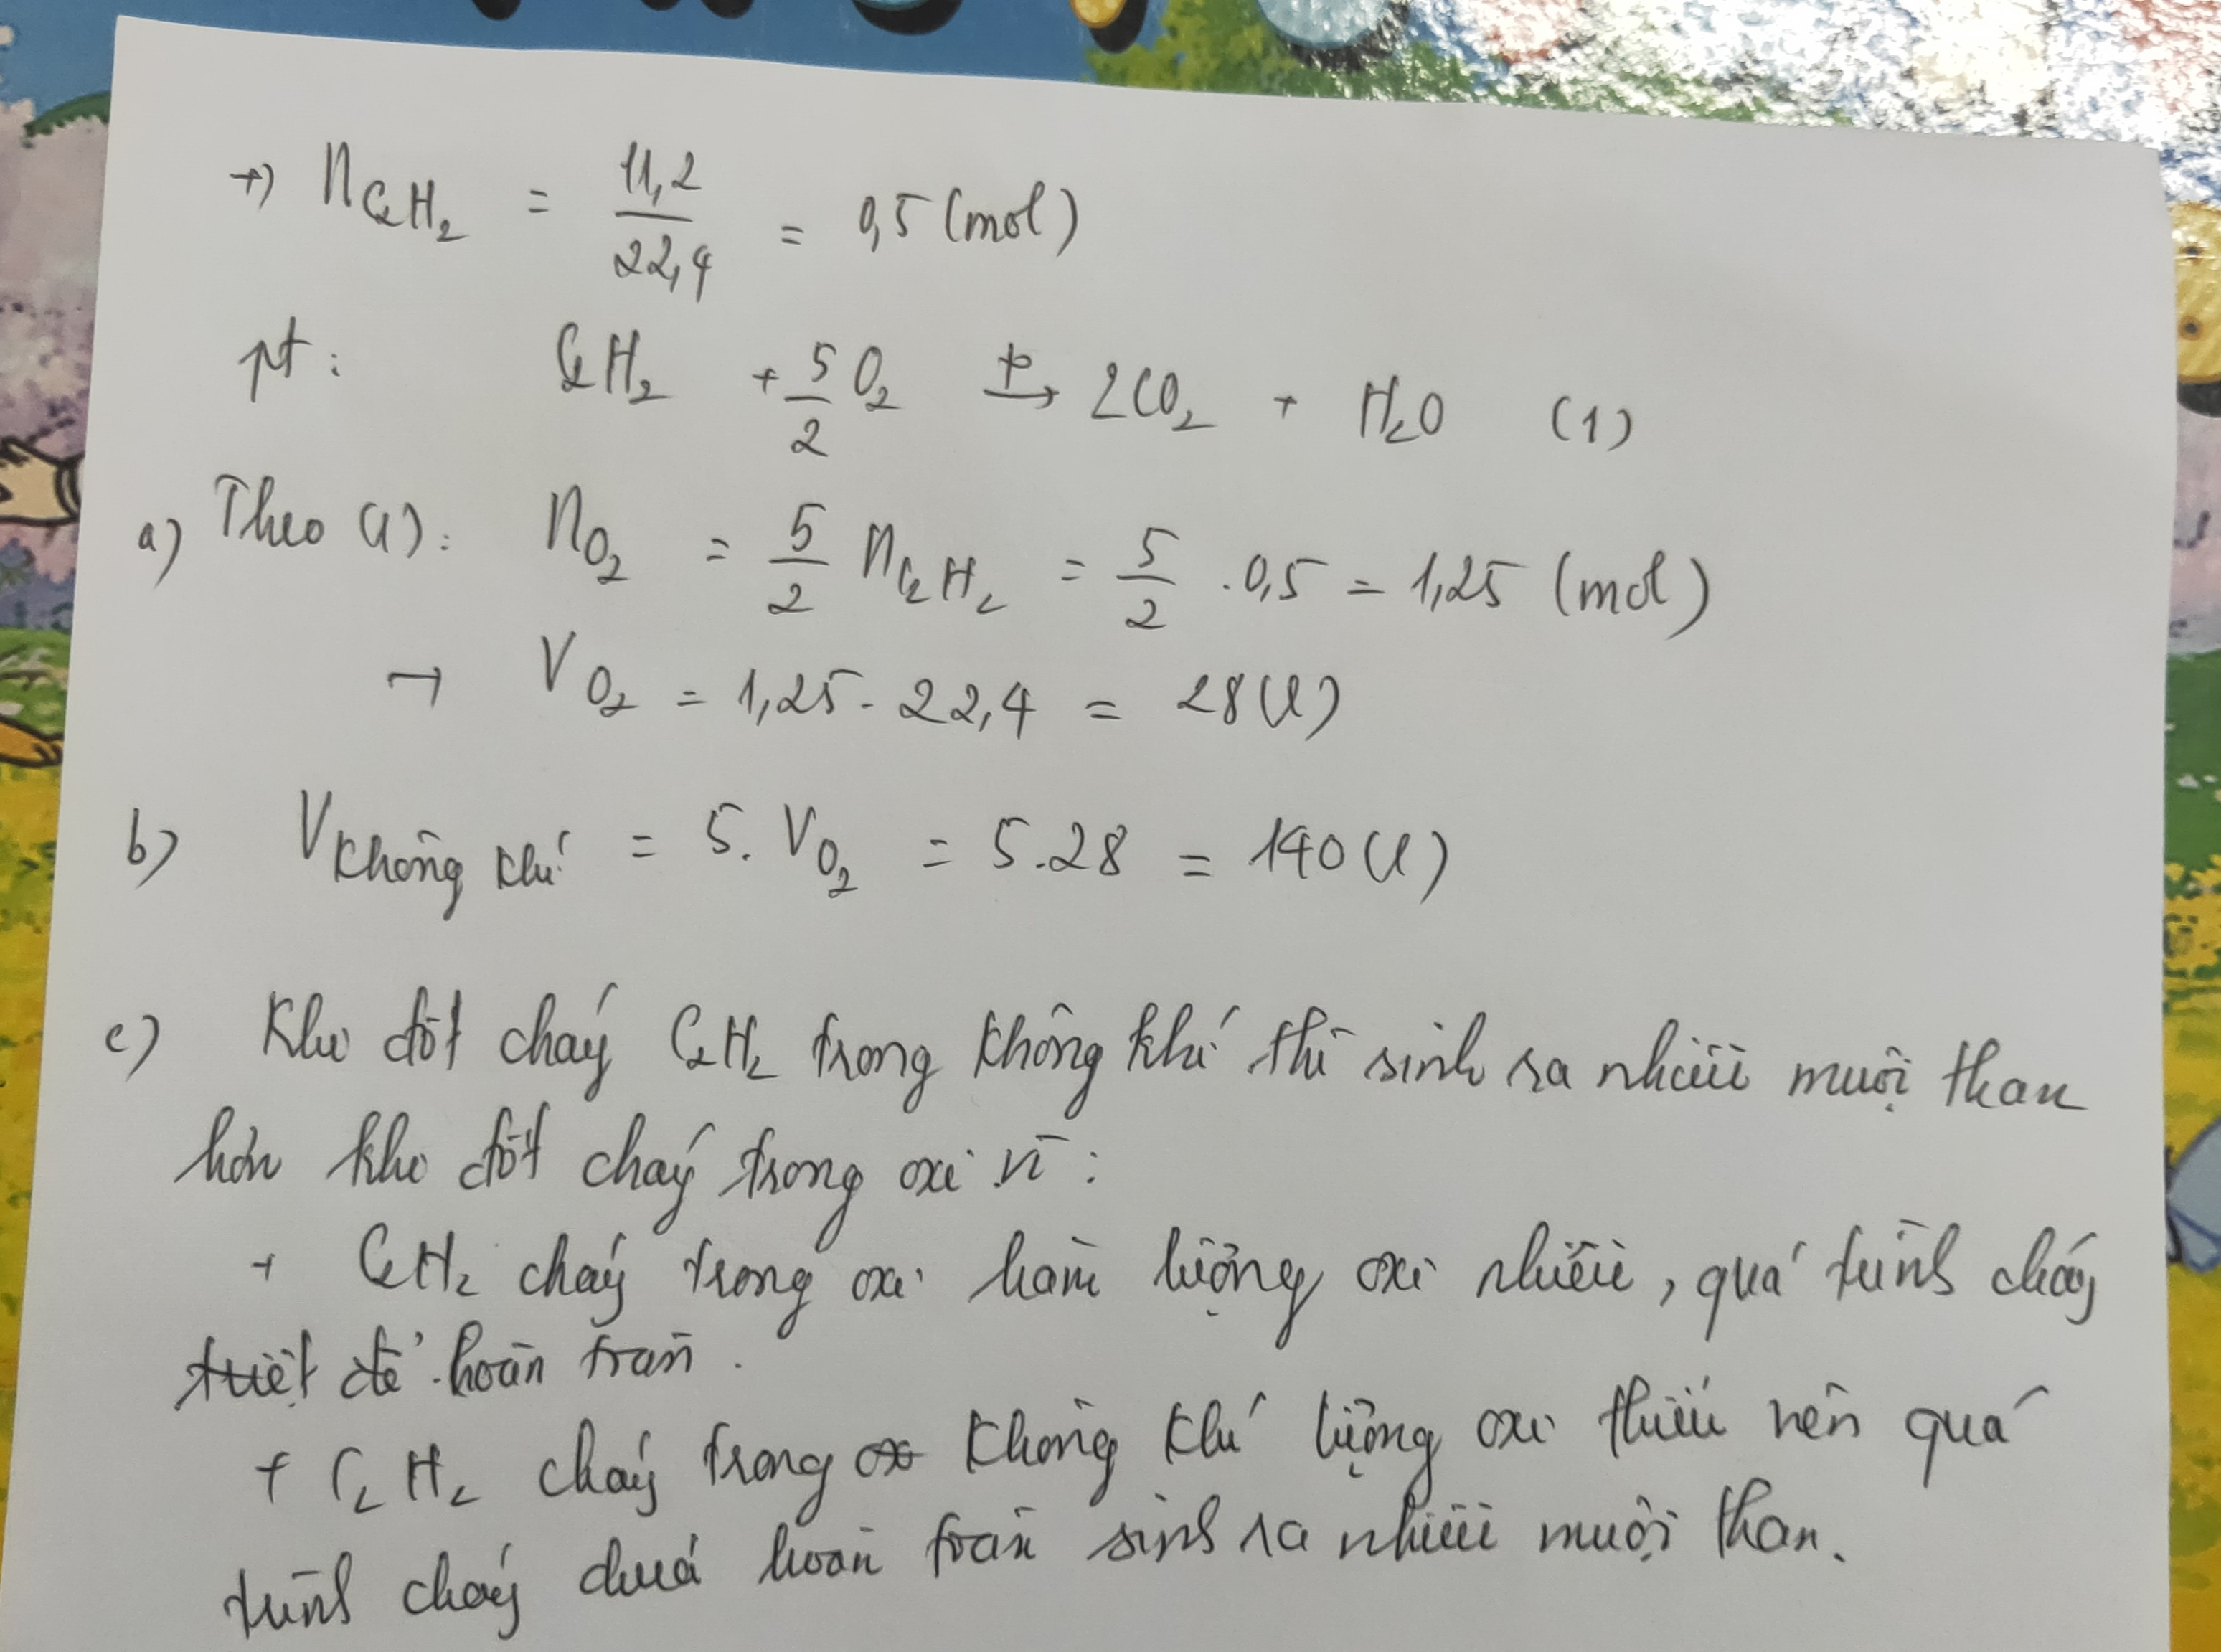 +) nC2H2 = 11,2/22,4 = 0,5 (mol)
pt: C2H2 + 5/2 O2 →(t°) 2CO2 + H2O (1)
a) Theo (1): nO2 = 5/2 nC2H2 = 5/2 . 0,5 = 1,25 (mol)
→ VO2 = 1,25 . 22,4 = 28 (l)
b) Vkhông khí = 5. VO2 = 5.28 = 140 (l)
c) Khi đốt cháy C2H2 trong không khí thì sinh ra nhiều muội than
hơn khi đốt cháy trong oxi vì:
+ C2H2 cháy trong oxi hàm lượng oxi nhiều, quá trình cháy
triệt để hoàn toàn.
+ C2H2 cháy trong không khí lượng oxi thiếu nên quá
trình cháy chưa hoàn toàn sinh ra nhiều muội than.